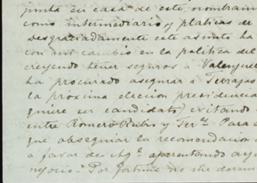 junta en casa de este nombram
como intermediario y platicas de
desgraciadamente este asunto ha
con mi cambio en la politica del
creyendo tener seguros á Valenzuel
ha procurado asegurar á Terrazas
la próxima eleccion presidencia
quiere ser candidato, evitando
entre Romero Rubio y Ter. Para
que obsequiar la recomendacion
á favor de aparentando
negocio. Por fortuna no she